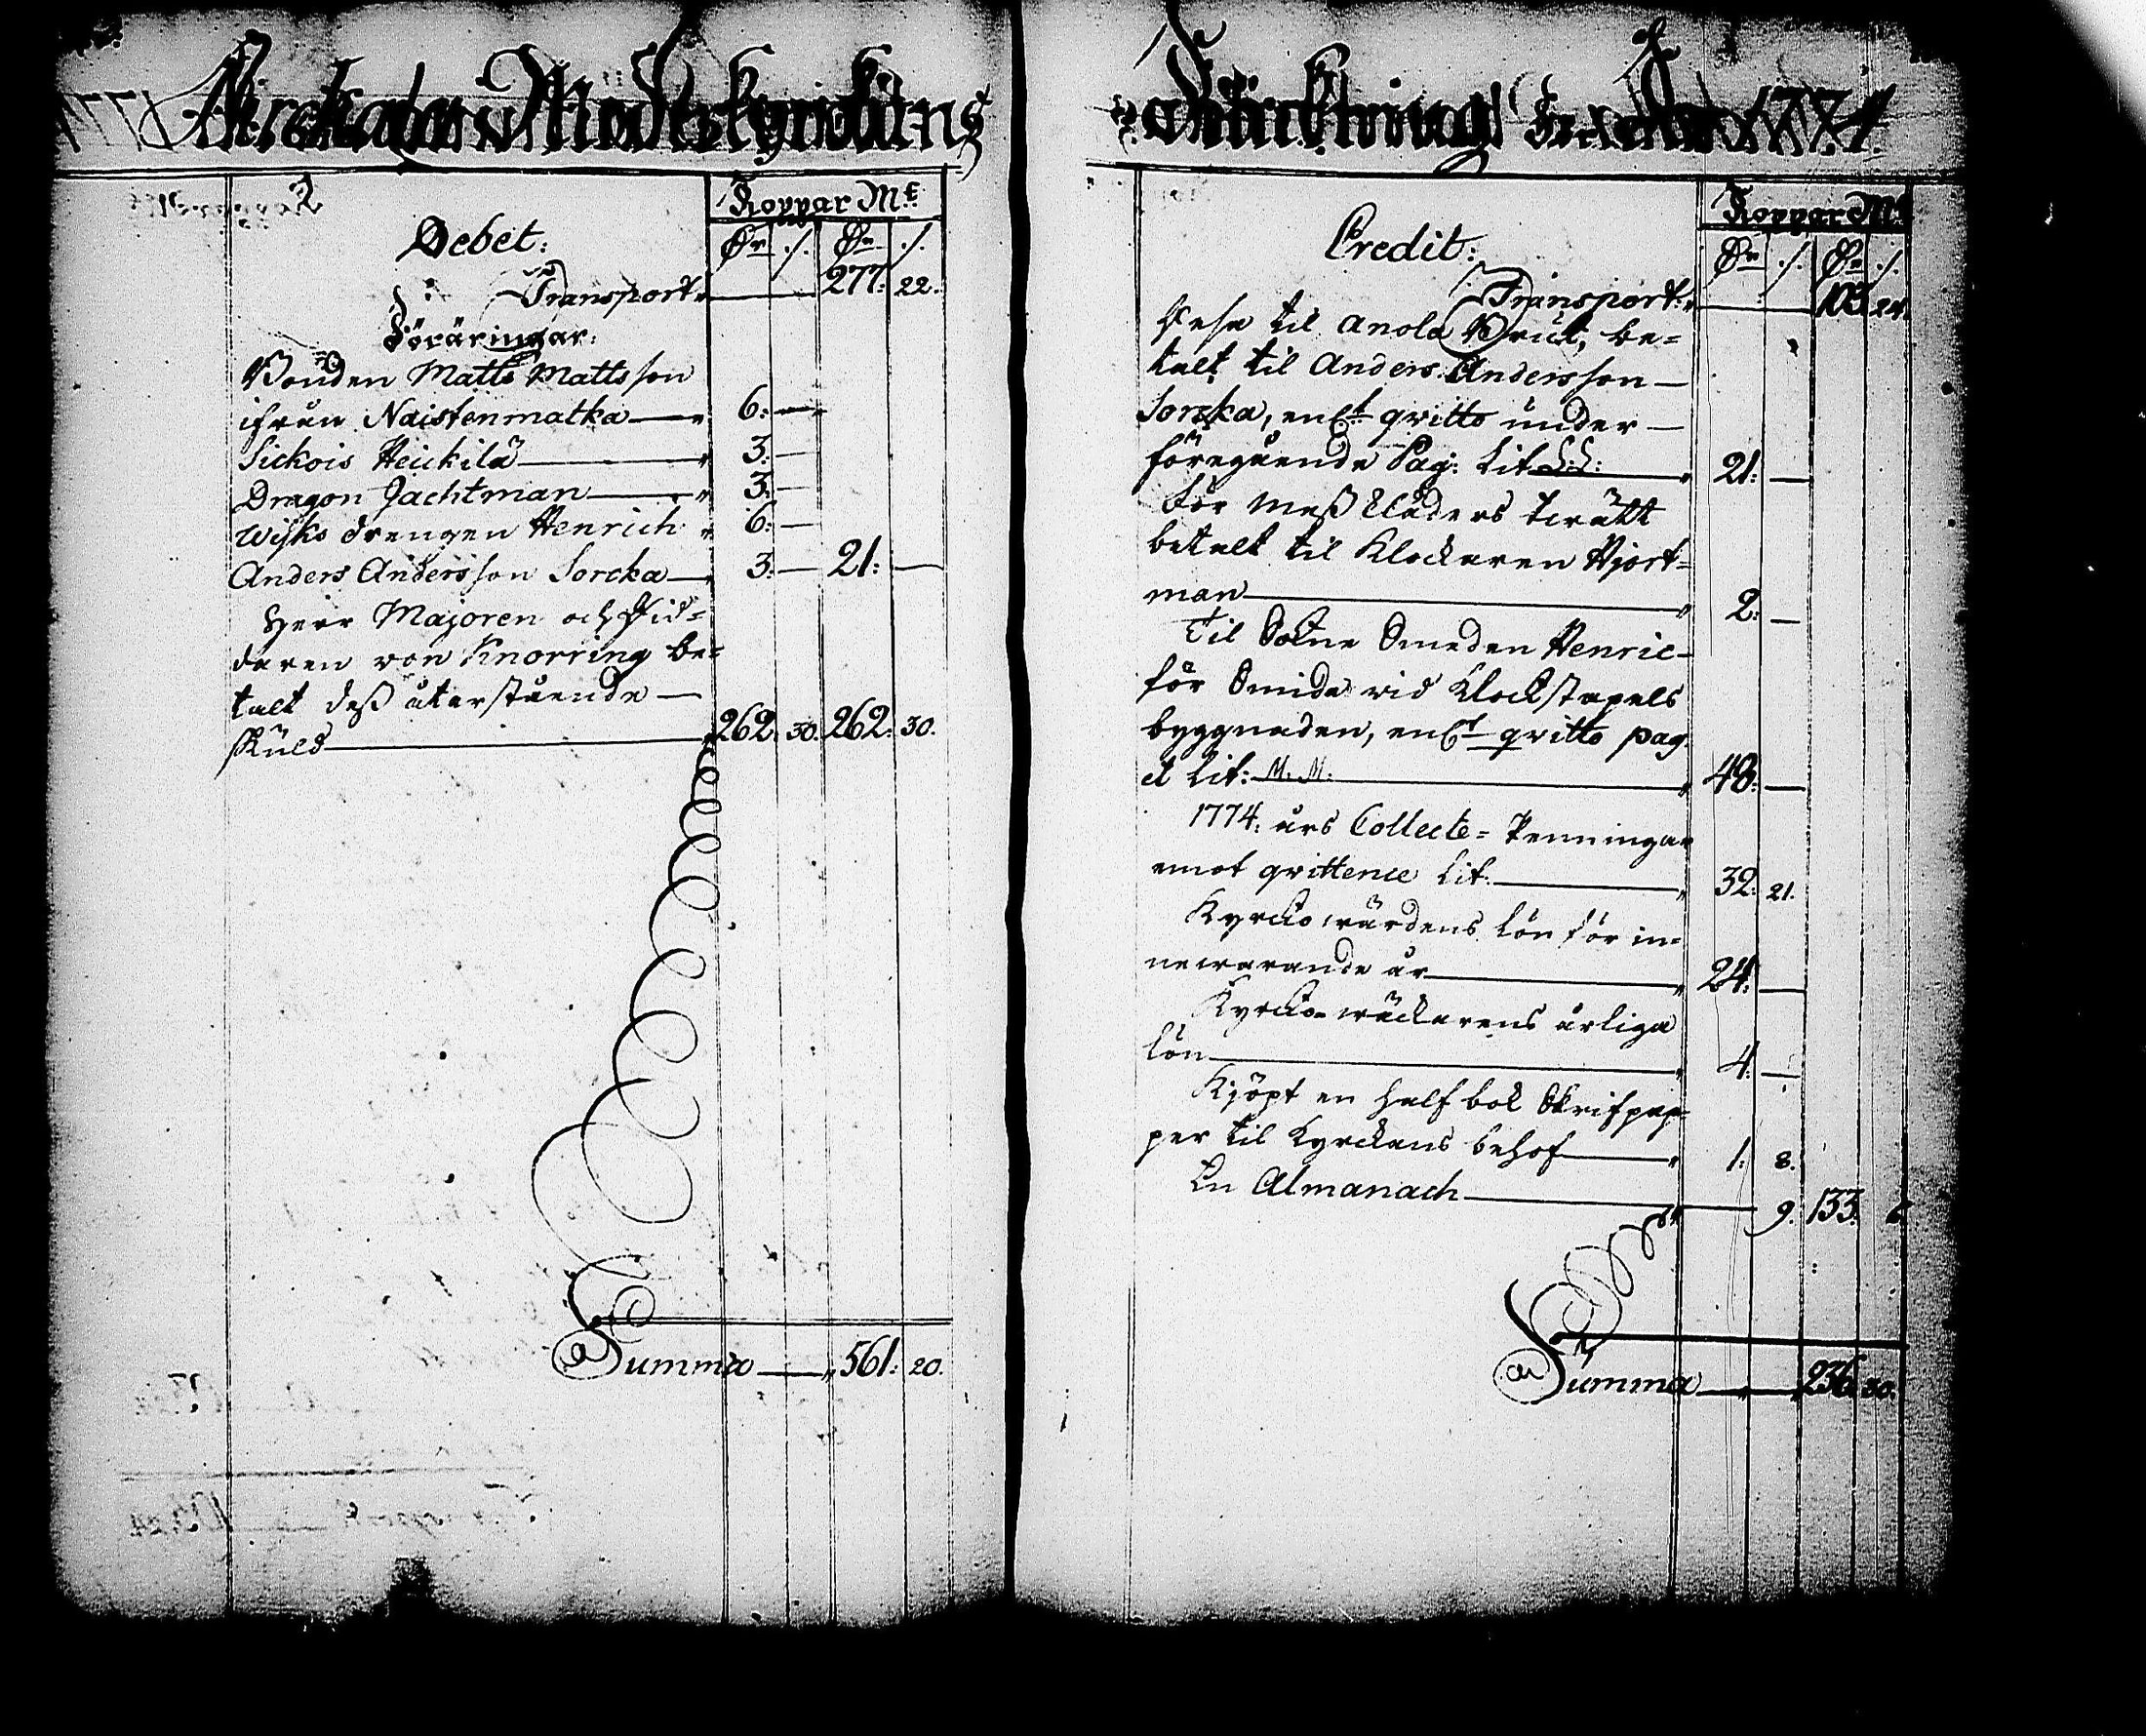 Debet:
Koppar Mt
Dr ./. Dr ./.
Transport 277: 22.
Föräringar:
Bonden Matts Mattsson
ifrån Naistenmatka 6: —
Sickois Heickilä 3: —
Dragon Jachtman 3: —
Wijks drengen Henrich 6: —
Anders Andersson Sorcka 3: — 21: —
Herr Majoren och Rid=
daren von Knorring be=
talt deß återstående
skuld 262: 30. 262: 30.
Summa 561: 20.
1774.
Credit:
Koppar Mt
Dr ./. Dr ./.
Transport 103 24.
til Anola be=
talt til Anders Andersson
Sorcka, enl:t qvitto under
föregående Pag: Lit L:L: 21: —
För Meß kläders twätt
betalt til Klockaren Hjort=
man 2: —
Til Sokne Smeden Henric
för Smide wid Klockstapels
byggnaden, enl:t qvitto pag.
et Lit: M. M: 48: —
1774: års Collecte= Penningar
emot qvittence Lit: 32: 21.
Kyrckio wärdens lön för in=
newarande år 24: —
Kyrckio-wäckarens årliga
lön 4: —
Kjöpt en half bok Skrifpap=
per til Kyrckans behof 1: 8.
En Almanach 9. 133: 6.
Summa 236. 30.